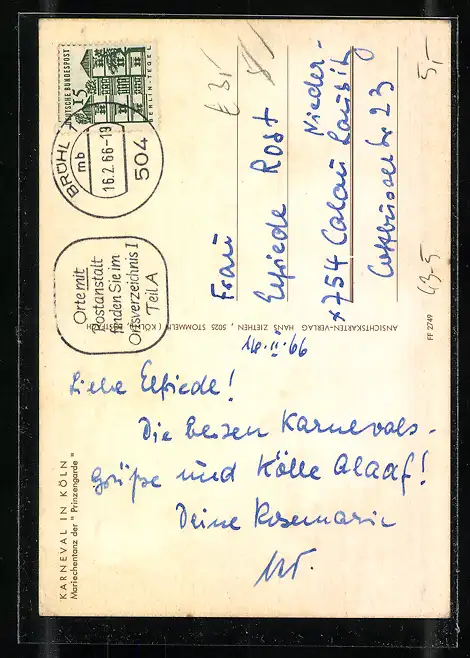 DEUTSCHE BUNDESPOST
15
BERLIN-TEGEL
BRÜHL
mb
16.2.66-19
504
Orte mit
Postanstalt
finden Sie im
Ortsverzeichnis I
Teil A
Frau
Elfriede Rost
x754 Calau Niederlausitz
Cottbusser Str 23
ANSICHTSKARTEN-VERLAG HANS ZIETHEN, 5025 STOMMELN (KÖLN)
FF 2749
14.II.66
Liebe Elfriede!
Die besten Karnevals-
Grüße und Kölle Alaaf!
Deine Rosemarie
KARNEVAL IN KÖLN
Mariechentanz der "Prinzengarde"
5,-